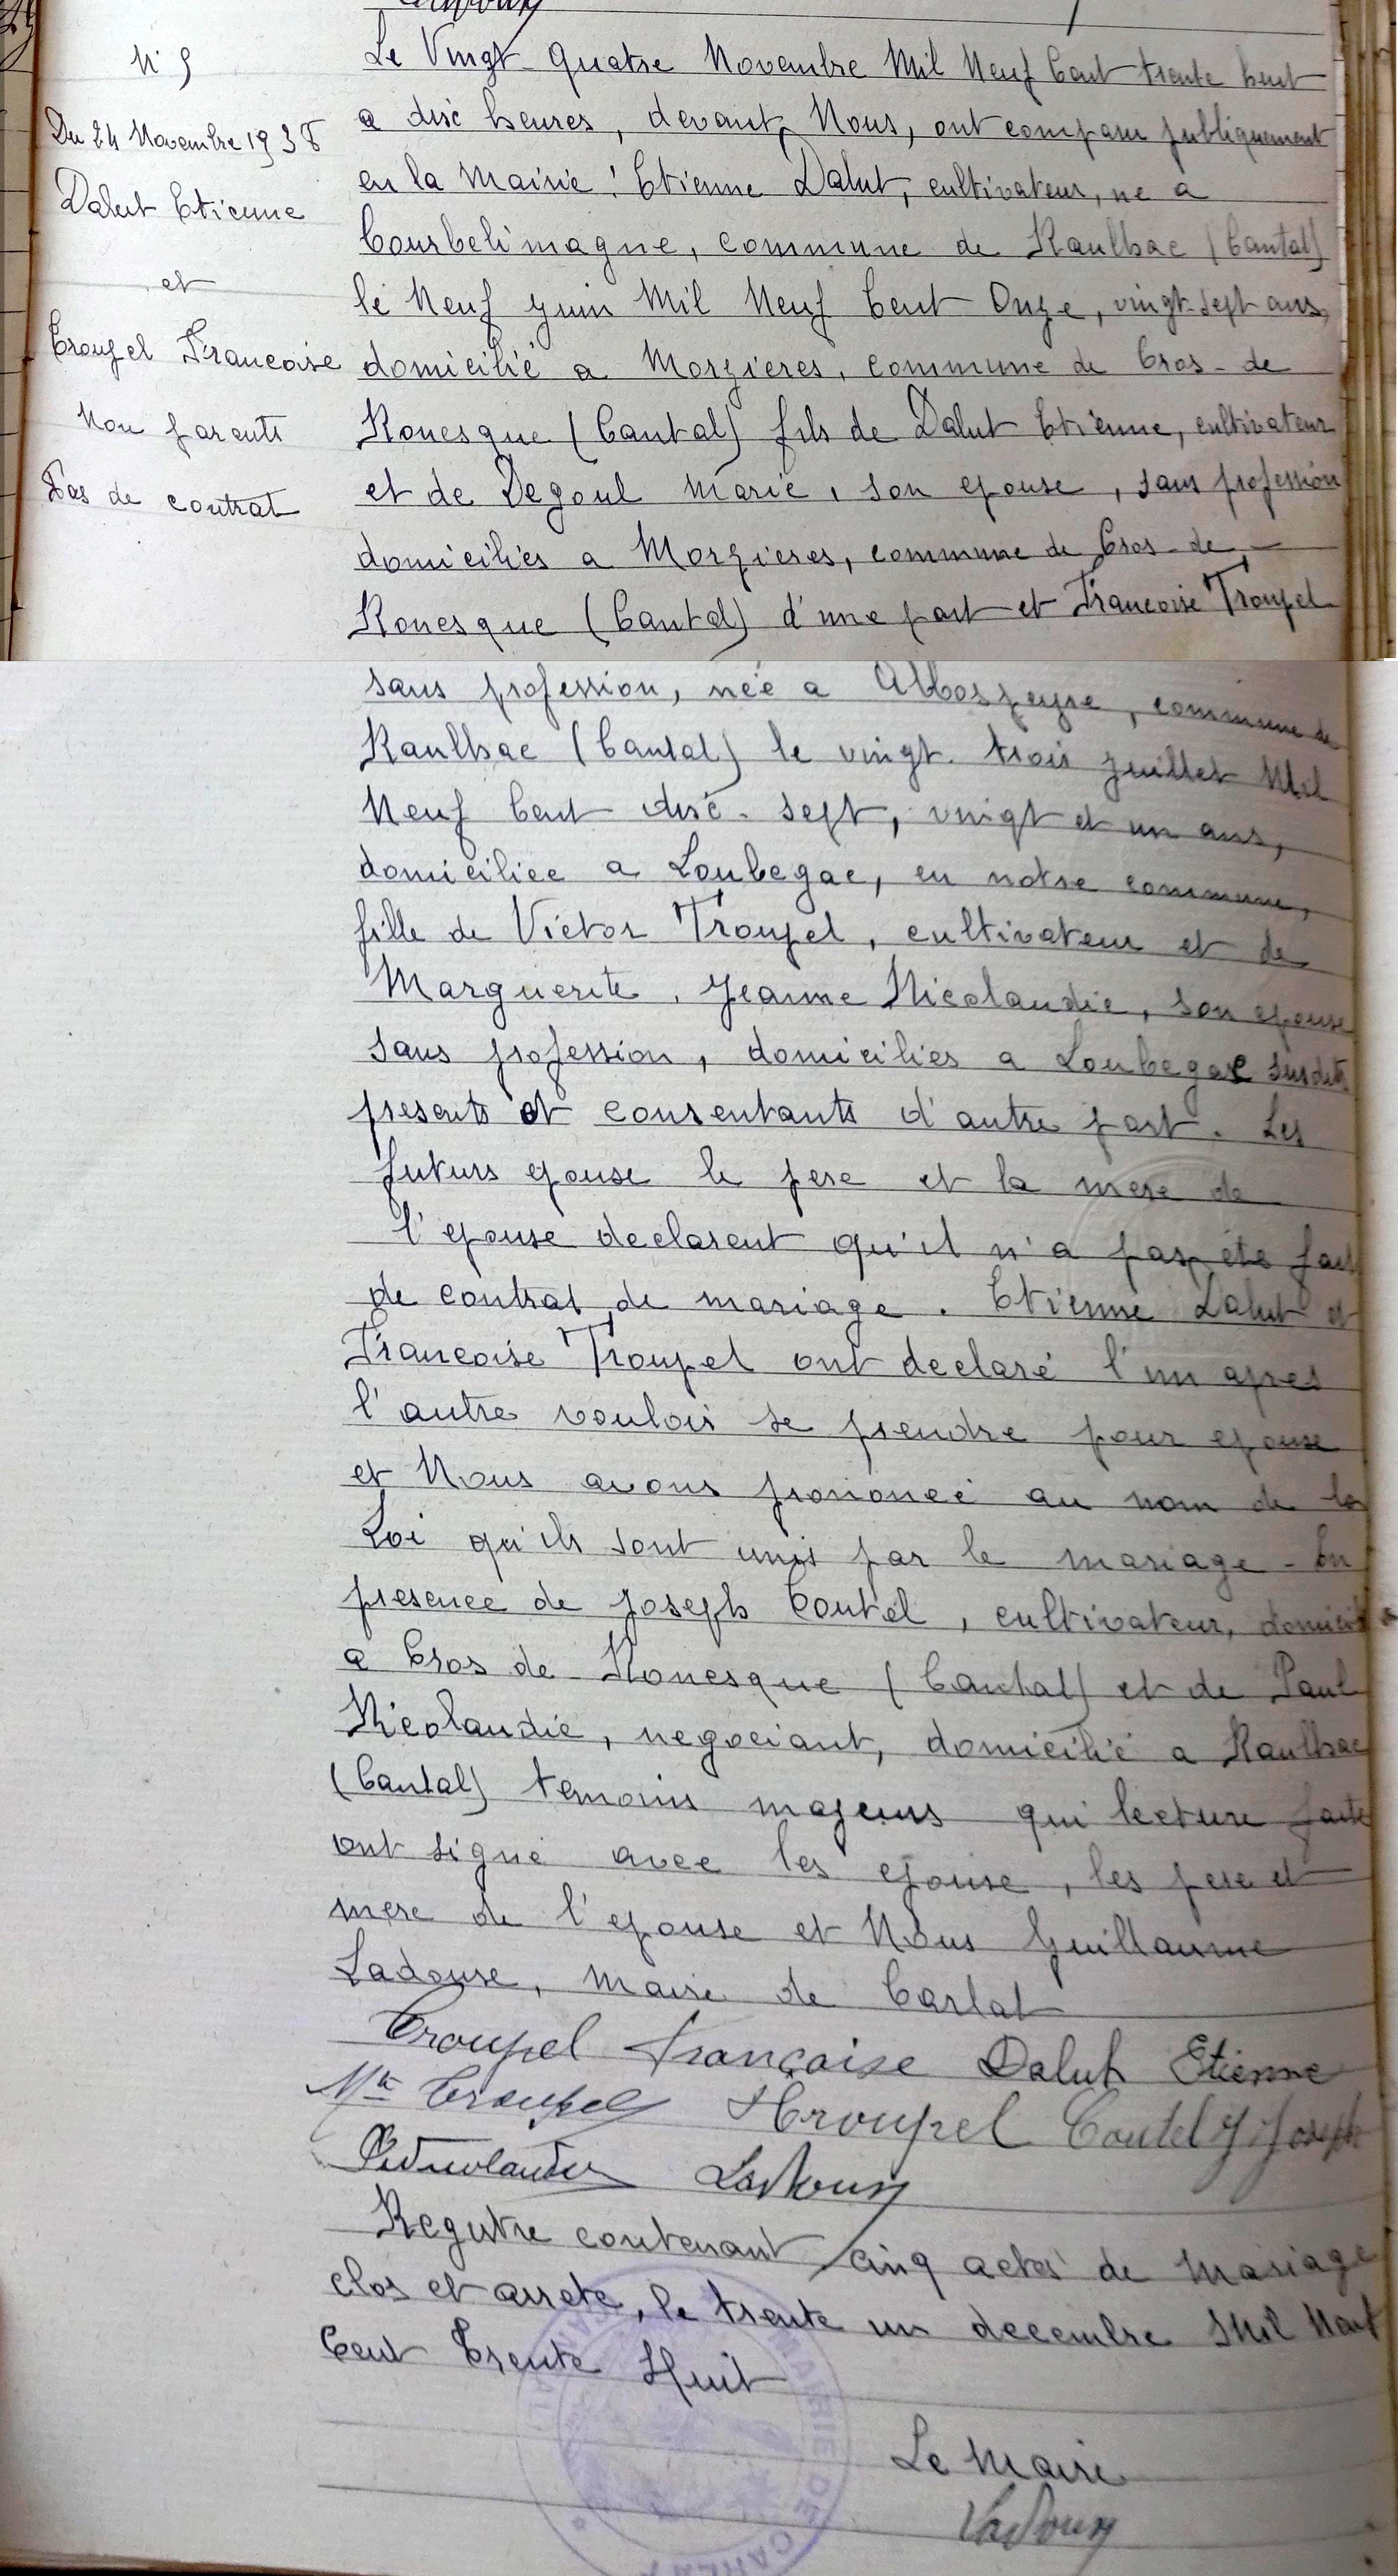 N° 5
Du 24 Novembre 1938
Dalut Etienne
et
Troupel Francoise
Non parents
Pas de contrat
Le Vingt-Quatre Novembre Mil Neuf Cent trente huit
a dix heures, devant Nous, ont comparu publiquement
en la Mairie : Etienne Dalut, cultivateur, ne a
Courbelimagne, commune de Raulhac (Cantal)
le Neuf Juin Mil Neuf Cent Onze, vingt-sept ans,
domicilié a Morzieres, commune de Cros-de
Ronesque (Cantal) fils de Dalut Etienne, cultivateur
et de Degoul Marie, son epouse, sans profession
domiciliés a Morzieres, commune de Cros-de-
Ronesque (Cantal) d'une part et Francoise Troupel
sans profession, née a , commune de
Raulhac (Cantal) le vingt-trois Juillet Mil
Neuf Cent dix-sept, vingt et un ans,
domiciliee a Loubegac, en notre commune,
fille de Victor Troupel, cultivateur et de
Marguerite, Jeanne Nicolaudie, son epouse
sans profession, domiciliés a Loubegac susdit
presents et consentants d'autre part. Les
futurs epouse le pere et la mere de
l'epouse declarent qu'il n'a pas été fait
de contrat de mariage. Etienne Dalut et
Francoise Troupel ont declaré l'un apres
l'autre vouloir se prendre pour epouse
et Nous avons prononcé au nom de la
Loi qu'ils sont unis par le mariage - En
presence de Joseph Coutel, cultivateur, domicilié
a Cros de Ronesque (Cantal) et de Paul
Nicolaudie, negociant, domicilié a Raulhac
(Cantal) temoins majeurs qui lecture faite
ont signé avec les epouse, les pere et
mere de l'epouse et Nous Guillaume
Ladouse, Maire de Carlat
Troupel Françoise Dalut Etienne
Troupel Troupel Coutel J. Joseph
Ladoux
Registre contenant cinq actes de Mariage
clos et arreté, le trente un decembre Mil Neuf
Cent Trente Huit
Le Maire
Ladoux
MAIRIE DE CARLAT